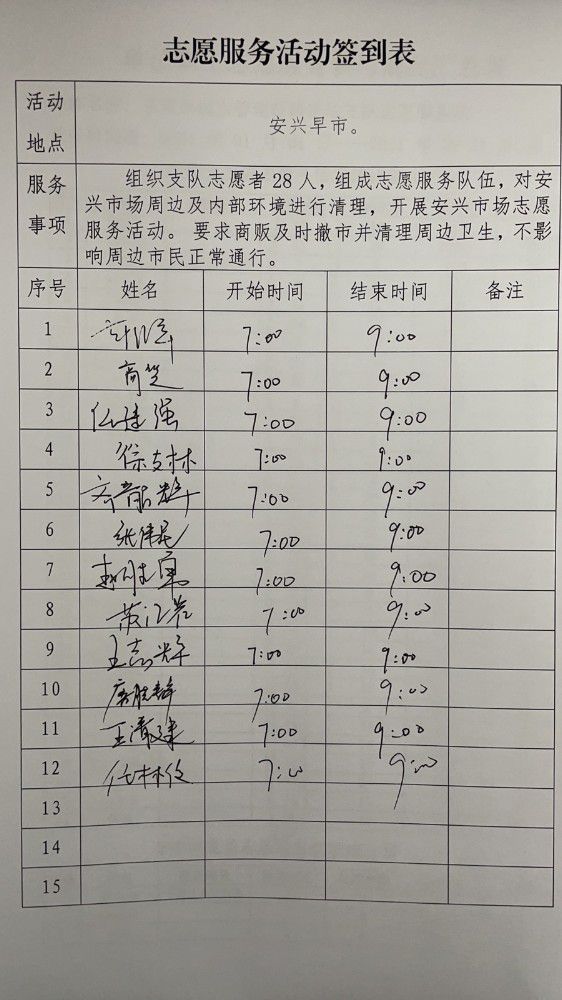 志愿服务活动签到表
活动地点 安兴早市。
服务事项 组织支队志愿者28人，组成志愿服务队伍，对安
兴市场周边及内部环境进行清理，开展安兴市场志愿
服务活动。要求商贩及时撤市并清理周边卫生，不影
响周边市民正常通行。
序号 姓名 开始时间 结束时间 备注
1 7:00 9:00
2 7:00 9:00
3 7:00 9:00
4 7:00 9:00
5 7:00 9:00
6 7:00 9:00
7 7:00 9:00
8 7:00 9:00
9 王志辉 7:00 9:00
10 7:00 9:00
11 7:00 9:00
12 7:00 9:00
13
14
15